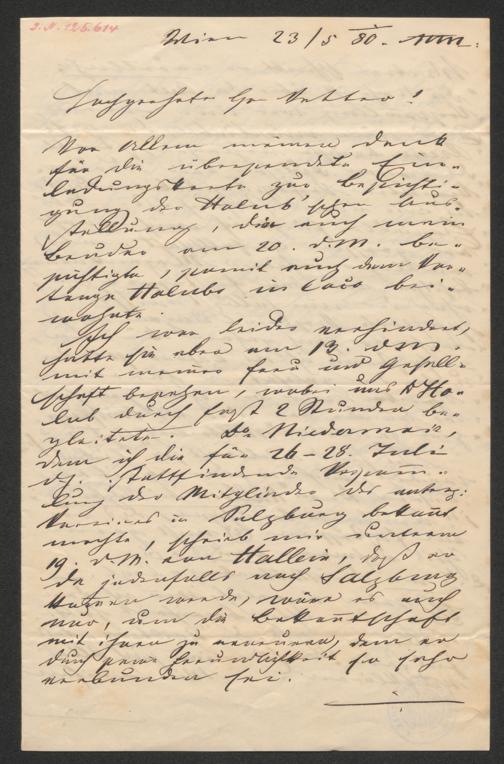 I.N. 125.614
Wien 23/5 80.
Hochgeehrter Hr Vetter!
Vor Allem meinen Dank
für die übersendete Ein-
ladungskarte zur Besichti-
gung der Holub'schen Aus-
stellung, die auch mein
Bruder am 20. d.M. be-
sichtigte, somit auch dem Vor-
trage Holubs in loco bei-
wohnte.
Ich war leider verhindert,
hatte sie aber am 13. d.M.
mit meiner Frau und Gesell-
schaft besehen, wobei uns Dr Ho-
lub durch fast 2 Stunden be-
gleitete. Dr Niedermair,
dem ich die für 26-28. Juli
dJ. stattfindende Versamm-
lung der Mitglieder des
Vereines in Salzburg bekannt
machte, schrieb mir unterm
19. d.M. von Hallein, daß er
da jedenfalls nach Salzburg
werde, wäre es auch
nur, um die Bekanntschaft
mit Ihnen zu erneuern, dem er
durch seine Freundlichkeit so sehr
verbunden sei.